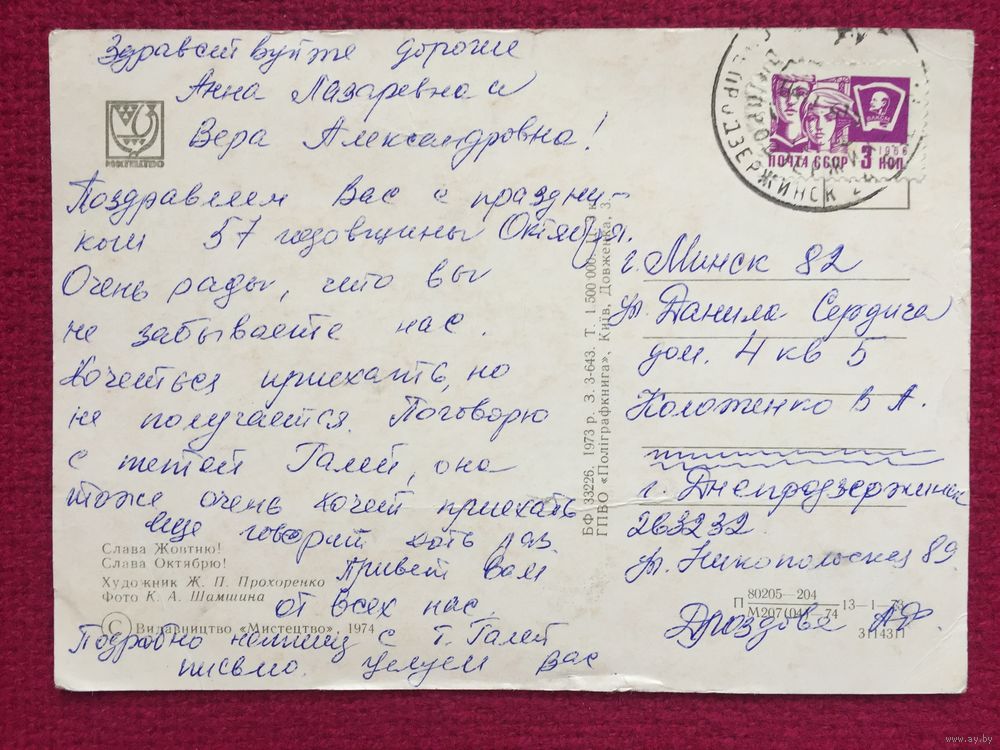 Здравствуйте дорогие
Анна Лазаревна и
Вера Александровна!
Поздравляем Вас с праздни-
ком 57 годовщины Октября.
Очень рады, что вы
не забываете нас.
Хочеться приехать, но
не получается. Поговорю
с тётей Галей, она
тоже очень хочет приехать
еще говорит хоть раз.
Привет Вам
от всех нас.
Подробно напишу с Т. Галей
письмо. Целуем Вас
МИСТЕЦТВО
Слава Жовтню!
Слава Октябрю!
Художник Ж. П. Прохоренко
Фото К. А. Шамшина
© Видавництво «Мистецтво», 1974
БФ 33226. 1973 р. З. 3-643. Т. 1 500 000.
ГПВО «Поліграфкнига», Київ, Довженка, 3.
ПОЧТА СССР 3 КОП
1966
ВЛКСМ
ДНЕПРОДЗЕРЖИНСК
г. Минск 82
ул. Данила Сердича
дом. 4 кв 5
Коложенко В А.
г. Днепродзержинск
263232
ул. Никопольская 89
Дроздова А Ф.
П 80205—204
М207(04)—74 13—1—73
3114311
www.ay.by